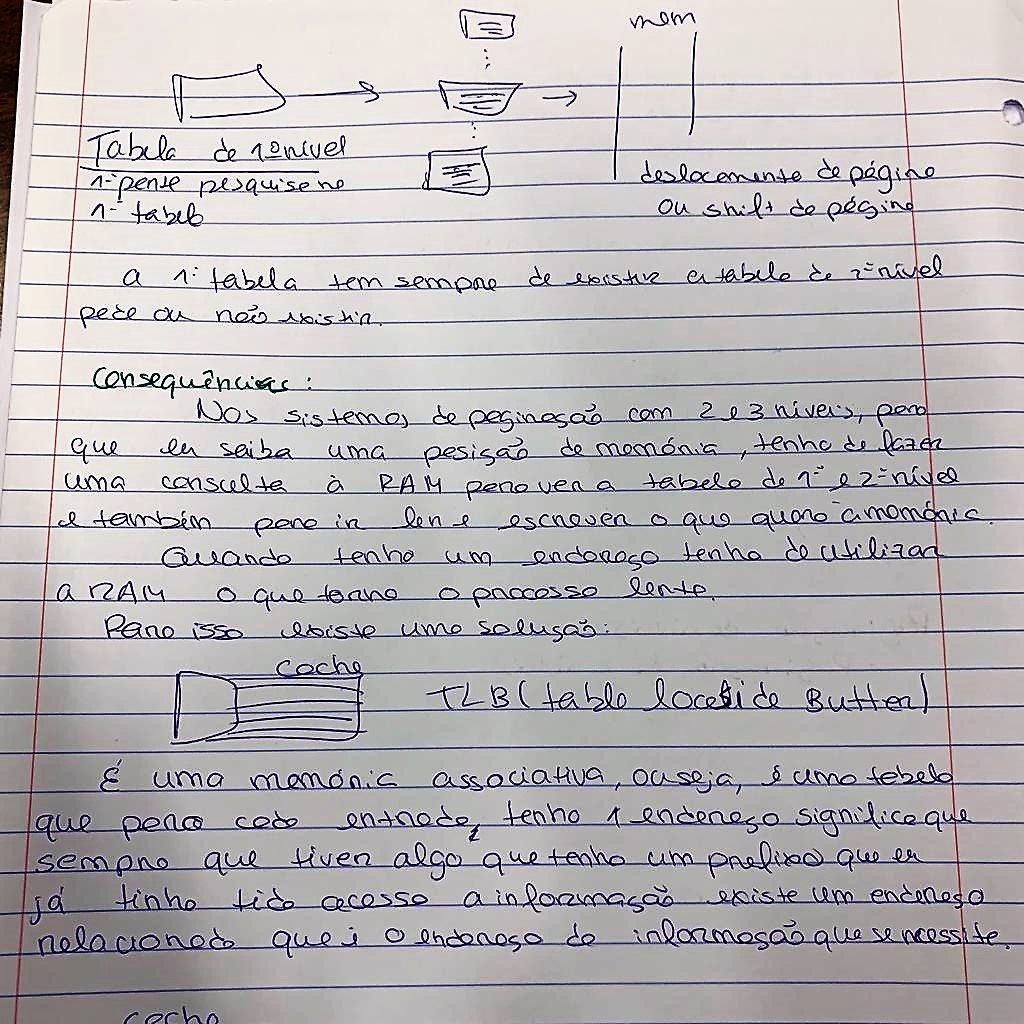 mem
Tabela de 1º nível
1º parte pesquisa na
1º tabela
deslocamento de página
ou shift de página
a 1º tabela tem sempre de existir a tabela de 2º nível
pode ou não existir.
Consequências:
Nos sistemas de paginação com 2 e 3 níveis, para
que eu saiba uma pesição de memória, tenho de fazer
uma consulta à RAM para ver a tabela de 1º e 2º nível
e também para ir ler e escrever o que quero à memória.
Quando tenho um endereço tenho de utilizar
a RAM o que torna o processo lento.
Para isso existe uma solução:
cache
TLB (table locaside Butter)
É uma memória associativa, ou seja, é uma tabela
que para cada entrada, tenho 1 endereço significa que
sempre que tiver algo que tenho um prefixo que eu
já tinha tido acesso a informação existe um endereço
relacionado que é o endereço da informação que se necessite.
cache